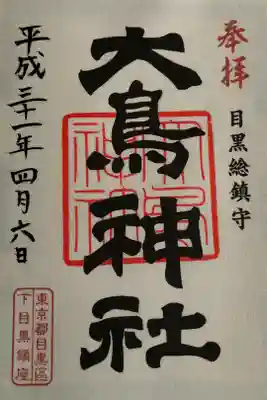 奉拝
目黒総鎮守
大鳥神社
平成三十一年四月六日
東京都目黒區
下目黒鎮座